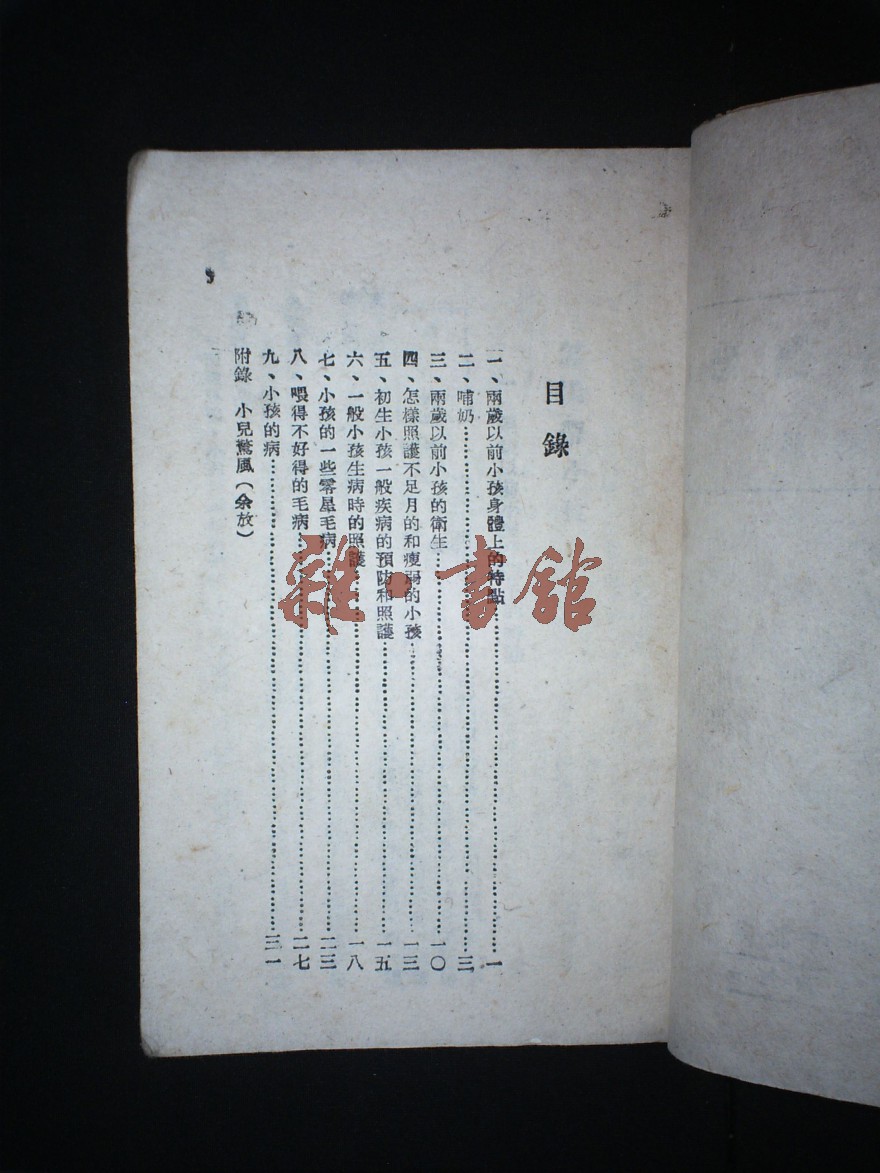 目錄
一、兩歲以前小孩身體上的特點……一
二、哺奶……三
三、兩歲以前小孩的衛生……一〇
四、怎樣照護不足月的和瘦弱的小孩……一三
五、初生小孩一般疾病的預防和照護……一五
六、一般小孩生病時的照護……一八
七、小孩的一些零星毛病……二三
八、喂得不好得的毛病……二七
九、小孩的病……三一
附錄 小兒驚風（余放）
雜·書館